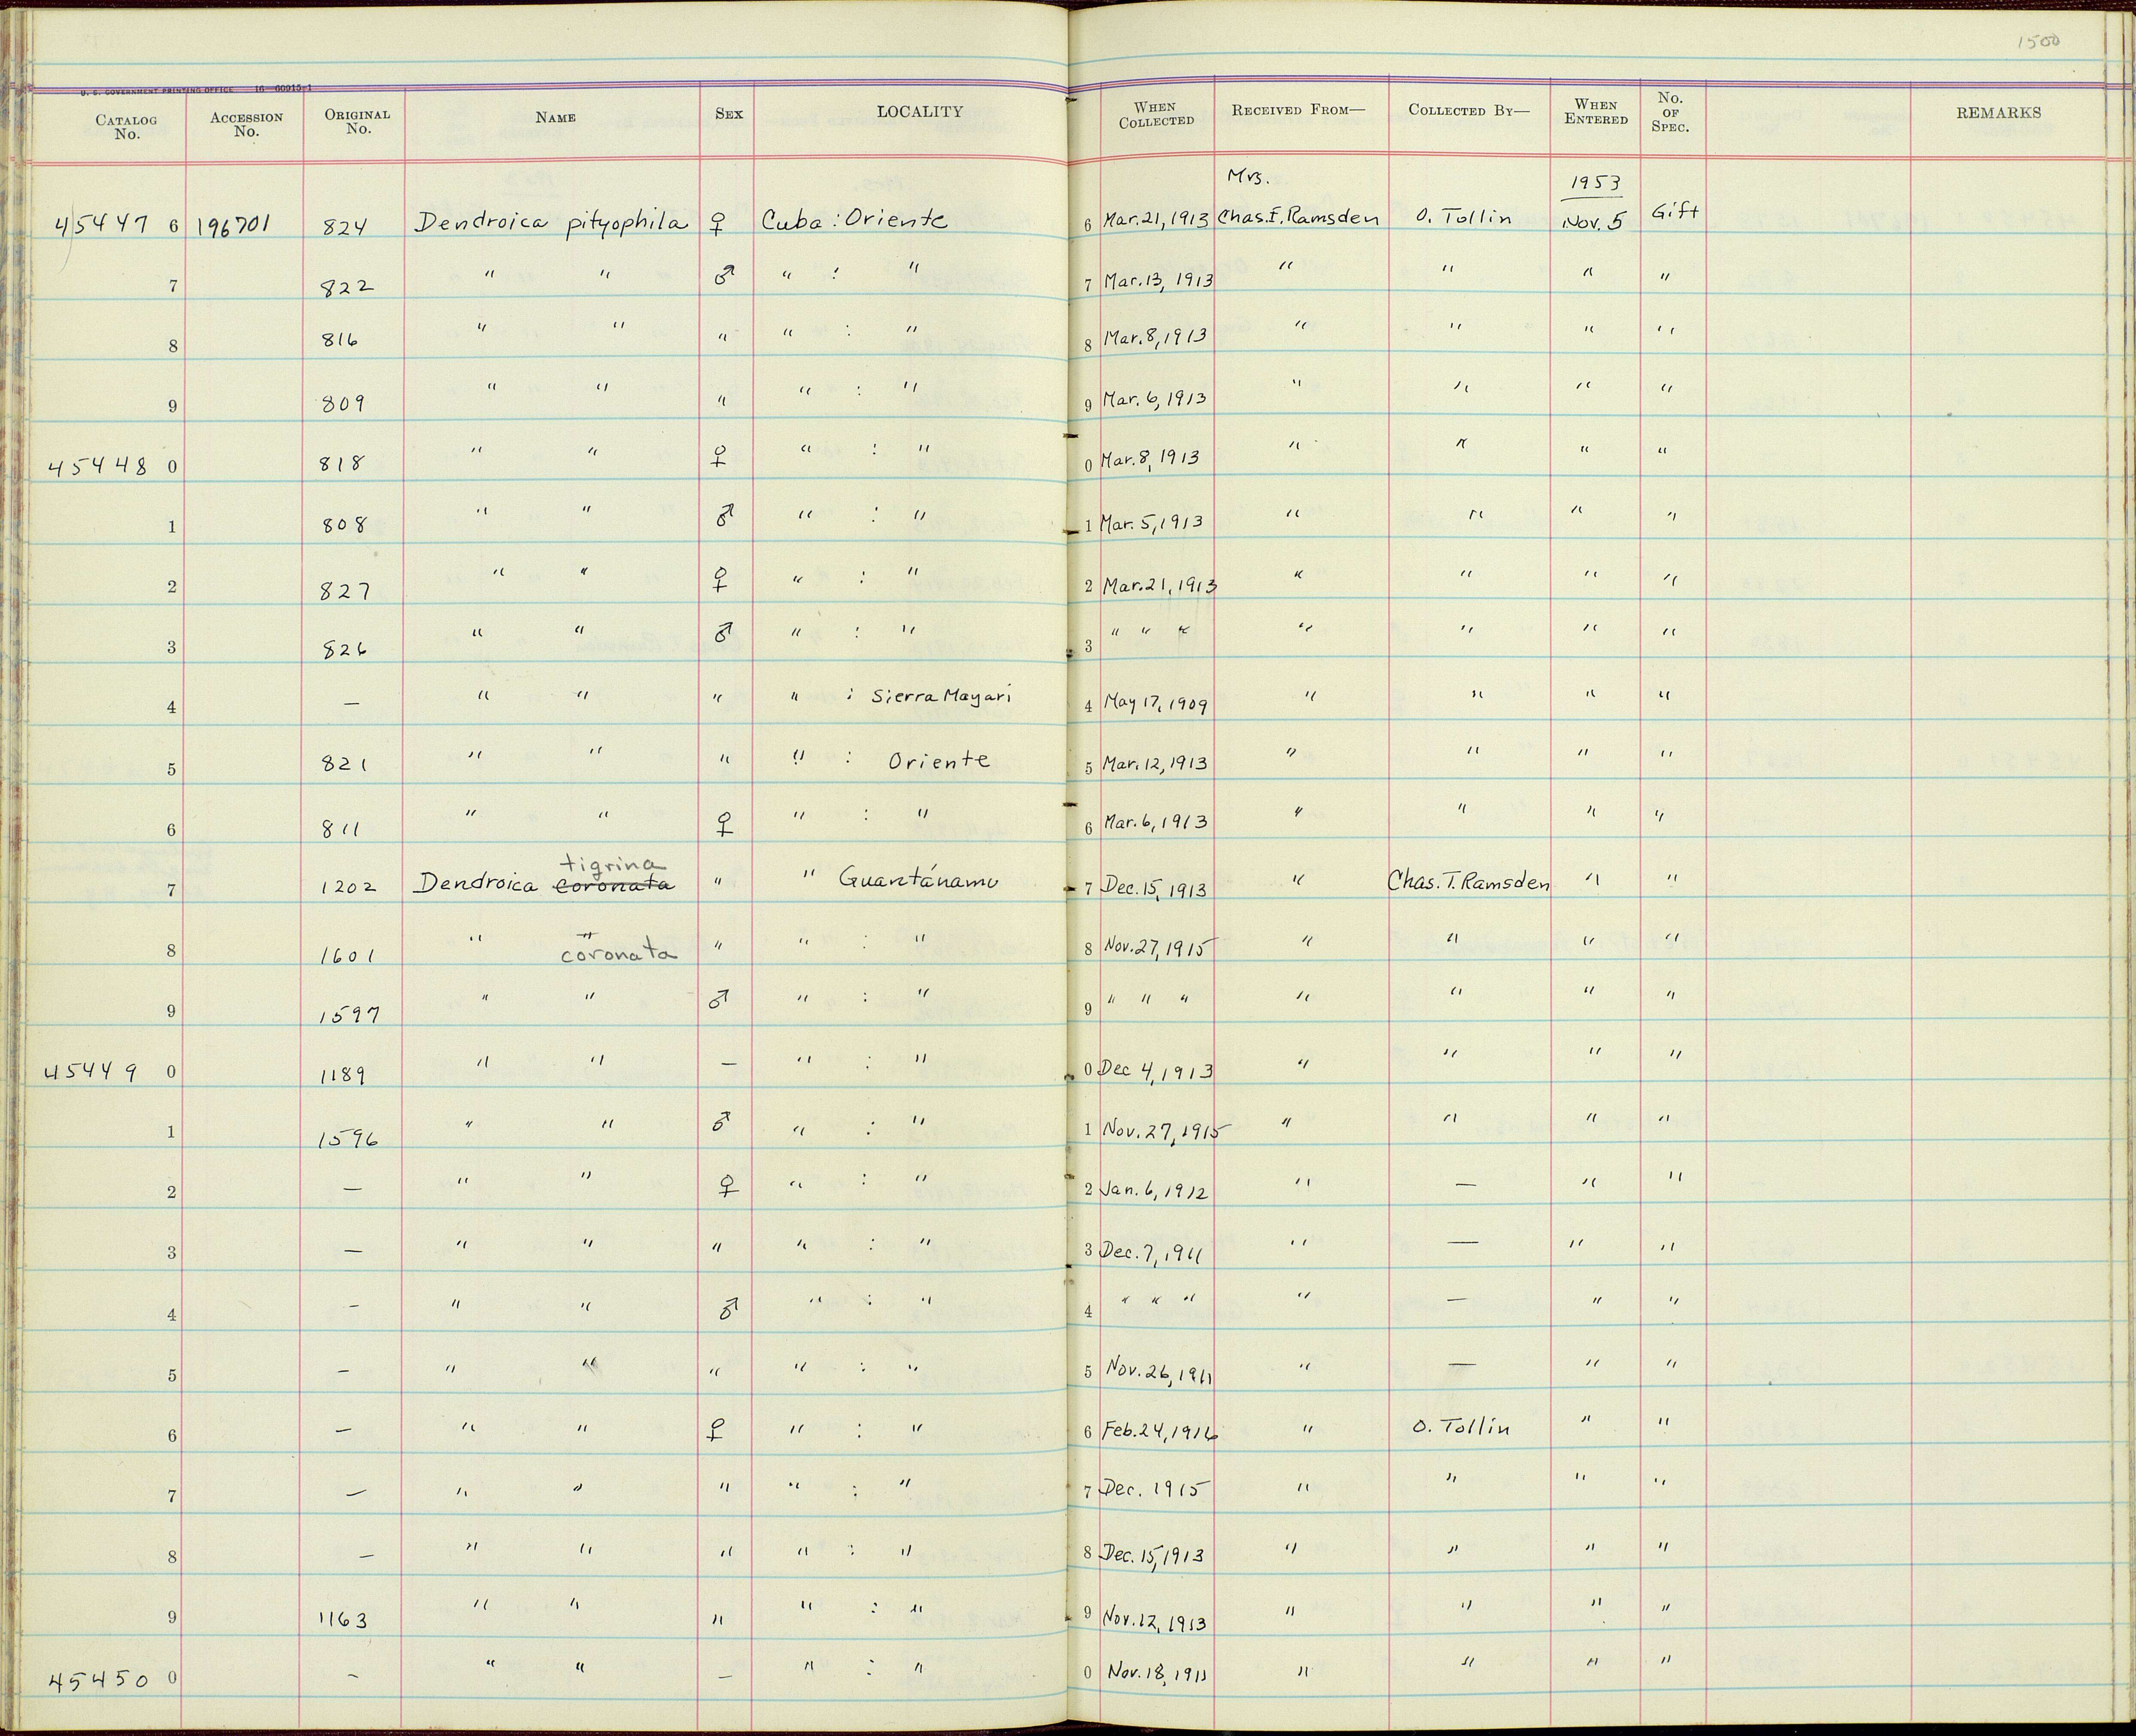 1500
U. S. GOVERNMENT PRINTING OFFICE 16—60915-1
CATALOG No. ACCESSION No. ORIGINAL No. NAME SEX LOCALITY WHEN COLLECTED RECEIVED FROM— COLLECTED BY— WHEN ENTERED No. OF SPEC. REMARKS
Mrs. 1953
45447 6 196701 824 Dendroica pityophila ♀ Cuba : Oriente 6 Mar. 21, 1913 Chas. T. Ramsden O. Tollin Nov. 5 Gift
7 822 " " ♂ " : " 7 Mar. 13, 1913 " " " "
8 816 " " " " : " 8 Mar. 8, 1913 " " " "
9 809 " " " " : " 9 Mar. 6, 1913 " " " "
45448 0 818 " " ♀ " : " 0 Mar. 8, 1913 " " " "
1 808 " " ♂ " : " 1 Mar. 5, 1913 " " " "
2 827 " " ♀ " : " 2 Mar. 21, 1913 " " " "
3 826 " " ♂ " : " 3 " " " " " " "
4 — " " " " : Sierra Mayari 4 May 17, 1909 " " " "
5 821 " " " " : Oriente 5 Mar. 12, 1913 " " " "
6 811 " " ♀ " : " 6 Mar. 6, 1913 " " " "
tigrina
7 1202 Dendroica coronata " " Guantánamo 7 Dec. 15, 1913 " Chas. T. Ramsden " "
8 1601 " " coronata " " : " 8 Nov. 27, 1915 " " " "
9 1597 " " ♂ " : " 9 " " " " " " "
45449 0 1189 " " — " : " 0 Dec 4, 1913 " " " "
1 1596 " " ♂ " : " 1 Nov. 27, 1915 " " " "
2 — " " ♀ " : " 2 Jan. 6, 1912 " — " "
3 — " " " " : " 3 Dec. 7, 1911 " — " "
4 — " " ♂ " : " 4 " " " " — " "
5 — " " " " : " 5 Nov. 26, 1911 " — " "
6 — " " ♀ " : " 6 Feb. 24, 1916 " O. Tollin " "
7 — " " " " : " 7 Dec. 1915 " " " "
8 — " " " " : " 8 Dec. 15, 1913 " " " "
9 1163 " " " " : " 9 Nov. 12, 1913 " " " "
45450 0 — " " — " : " 0 Nov. 18, 1911 " " " "